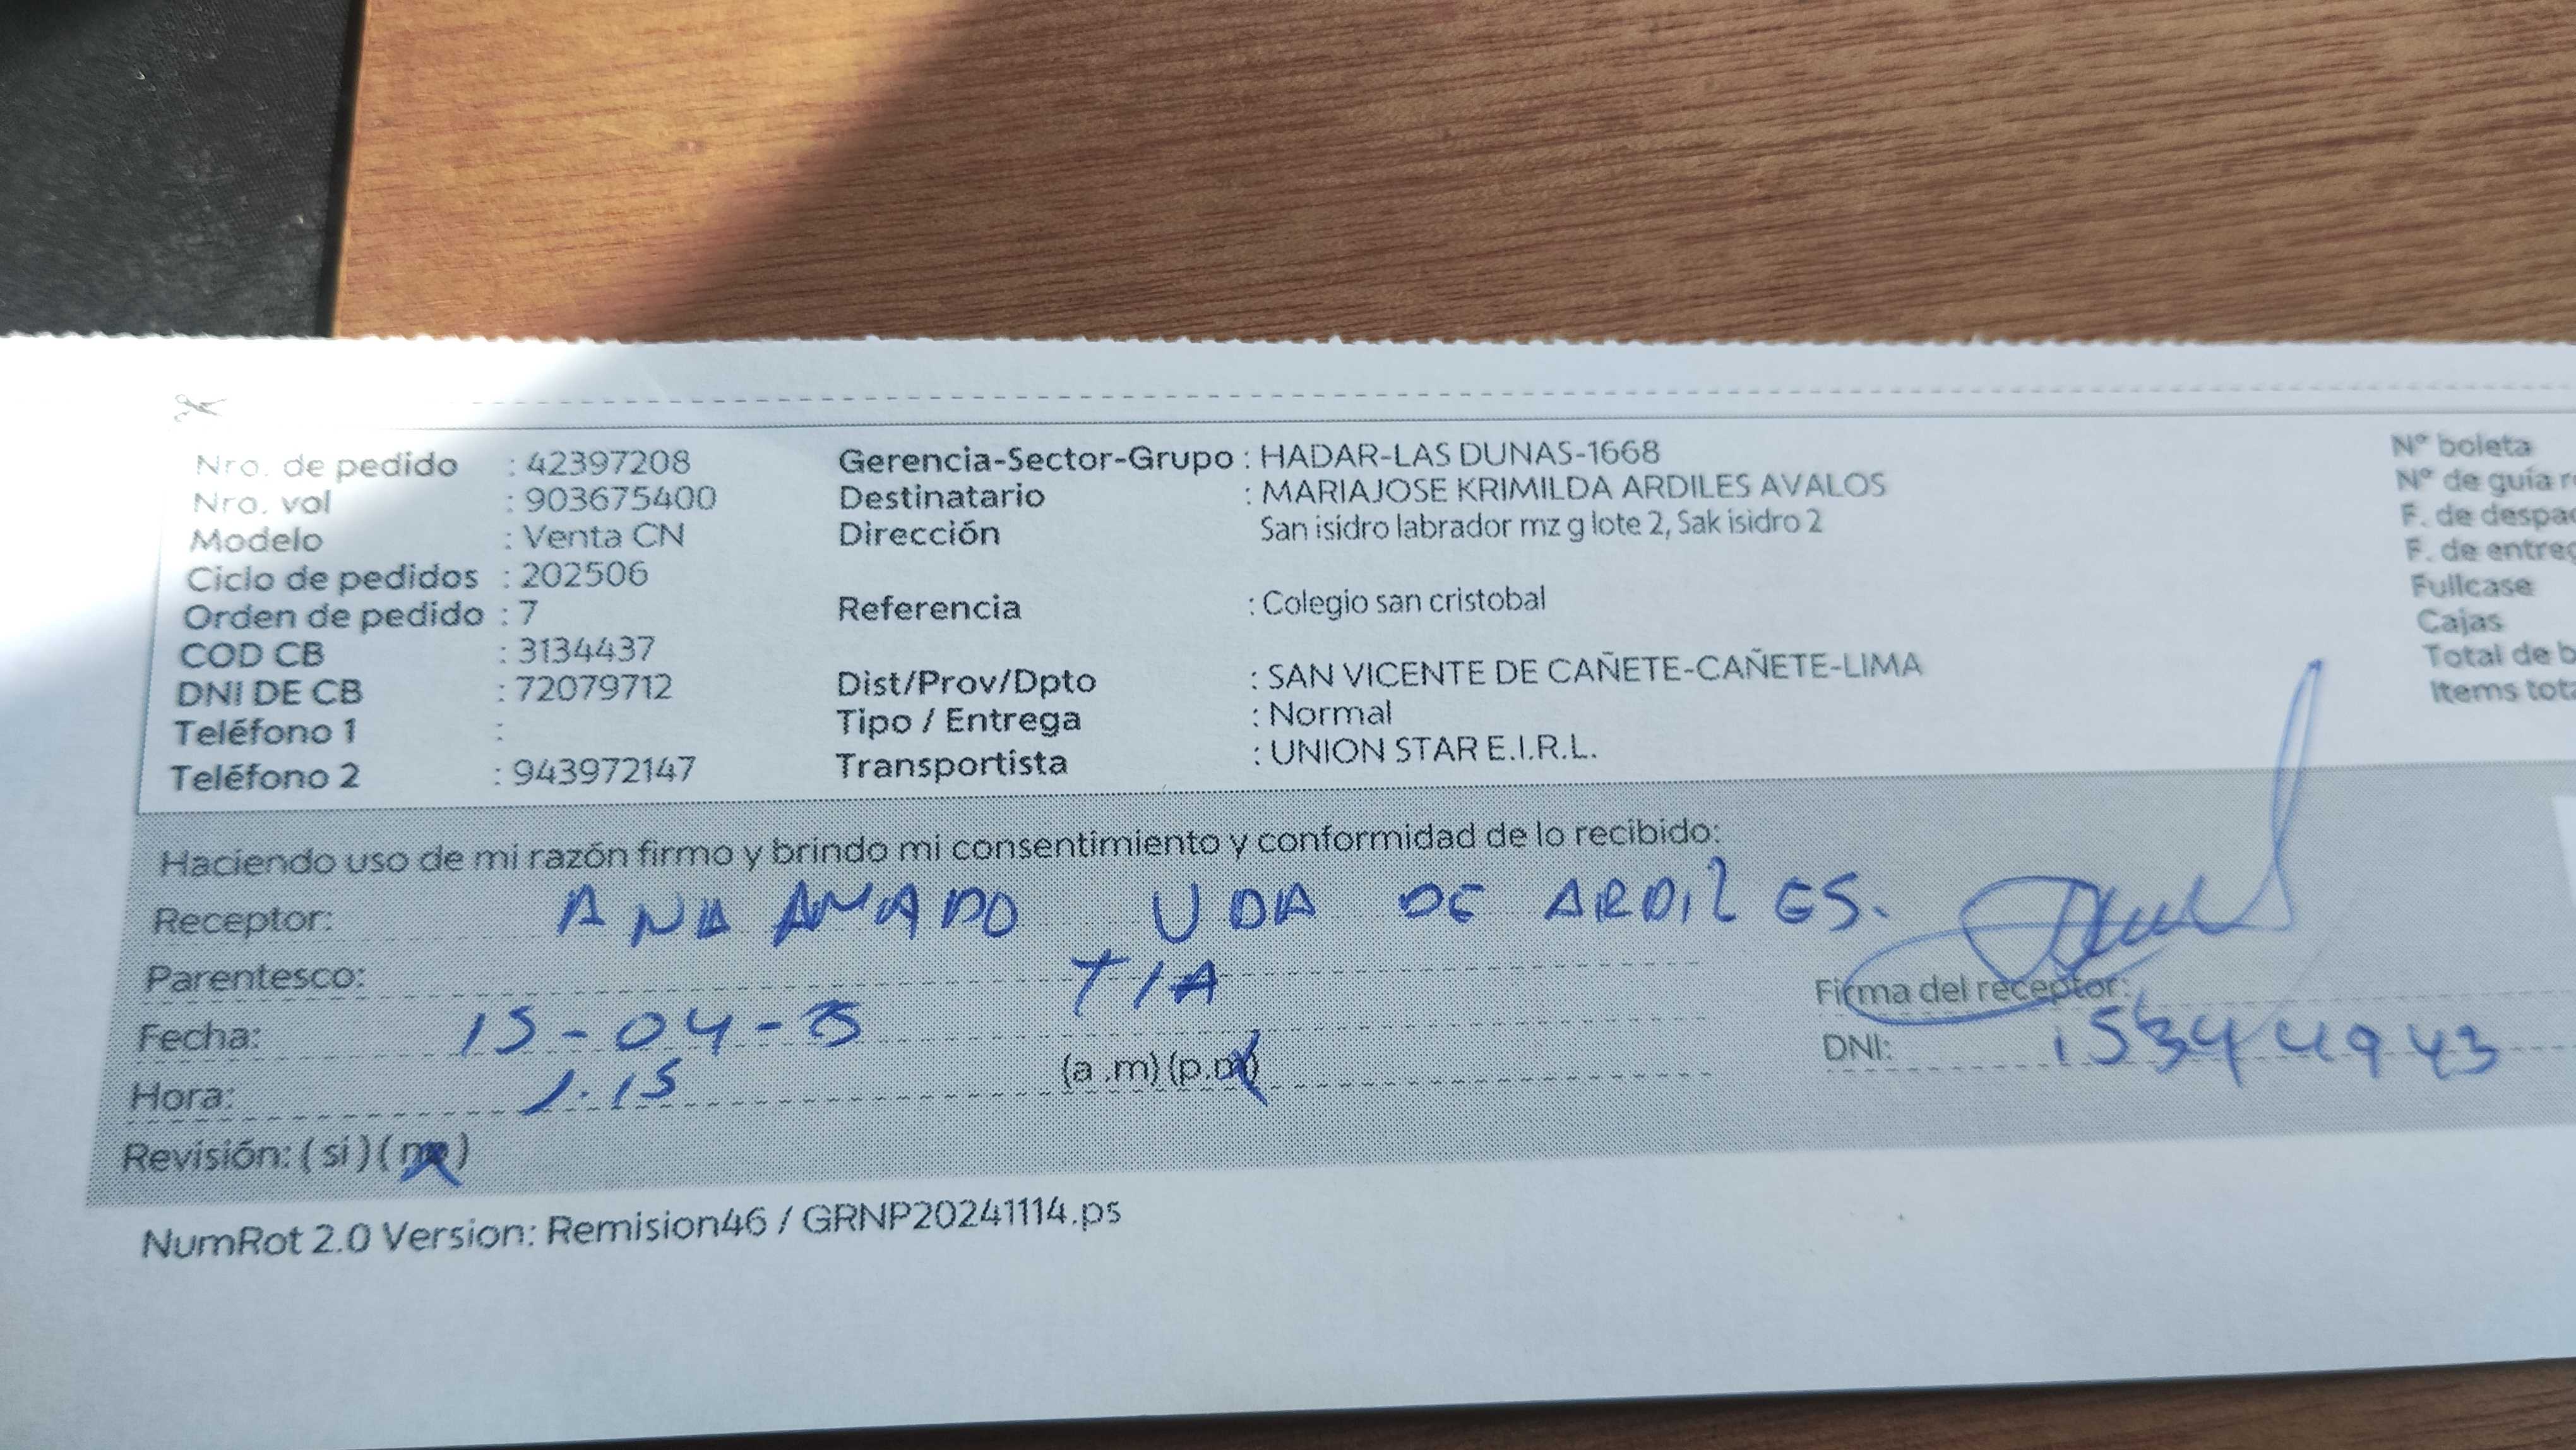 Nro. de pedido : 42397208
Nro. vol : 903675400
Modelo : Venta CN
Ciclo de pedidos : 202506
Orden de pedido : 7
COD CB : 3134437
DNI DE CB : 72079712
Teléfono 1 :
Teléfono 2 : 943972147
Gerencia-Sector-Grupo : HADAR-LAS DUNAS-1668
Destinatario : MARIAJOSE KRIMILDA ARDILES AVALOS
Dirección San isidro labrador mz g lote 2, Sak isidro 2
Referencia : Colegio san cristobal
Dist/Prov/Dpto : SAN VICENTE DE CAÑETE-CAÑETE-LIMA
Tipo / Entrega : Normal
Transportista : UNION STAR E.I.R.L.
N° boleta
N° de guía
F. de
F. de
Fullcase
Cajas
Total de
Items
Haciendo uso de mi razón firmo y brindo mi consentimiento y conformidad de lo recibido:
Receptor: ANA AMADO UDA DE ARDILES.
Parentesco: TIA
Fecha: 15-04-
Hora: 1.15 (a .m) (p.m)
Revisión: ( si ) ( no )
Firma del receptor:
DNI: 15344943
NumRot 2.0 Version: Remision46 / GRNP20241114.ps